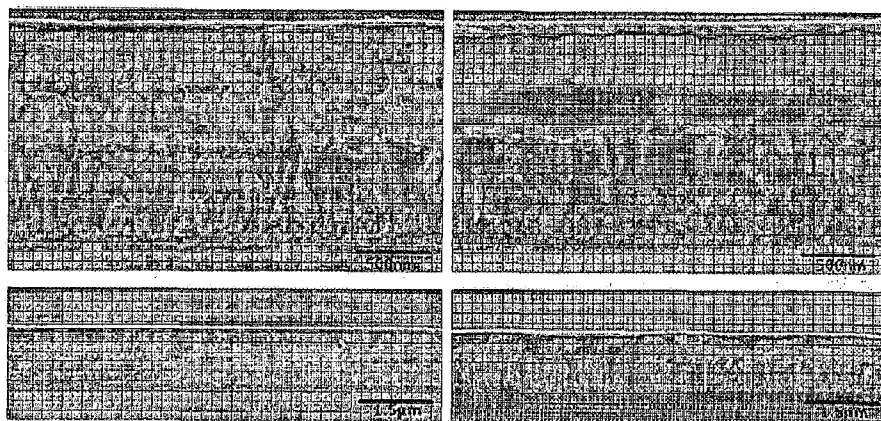 500nm
500nm
1.5µm
1.5µm